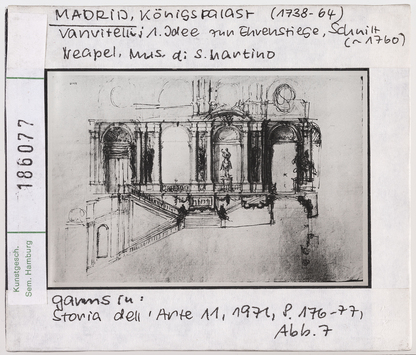 MADRID, Königspalast (1738-64)
Vanvitelli: 1. Idee zur Ehrenstiege, Schnitt
(~1760)
Neapel, Mus. di S. Martino
186077
Kunstgesch.
Sem. Hamburg
garms in:
Storia dell'Arte 11, 1971, S. 176-77,
Abb. 7